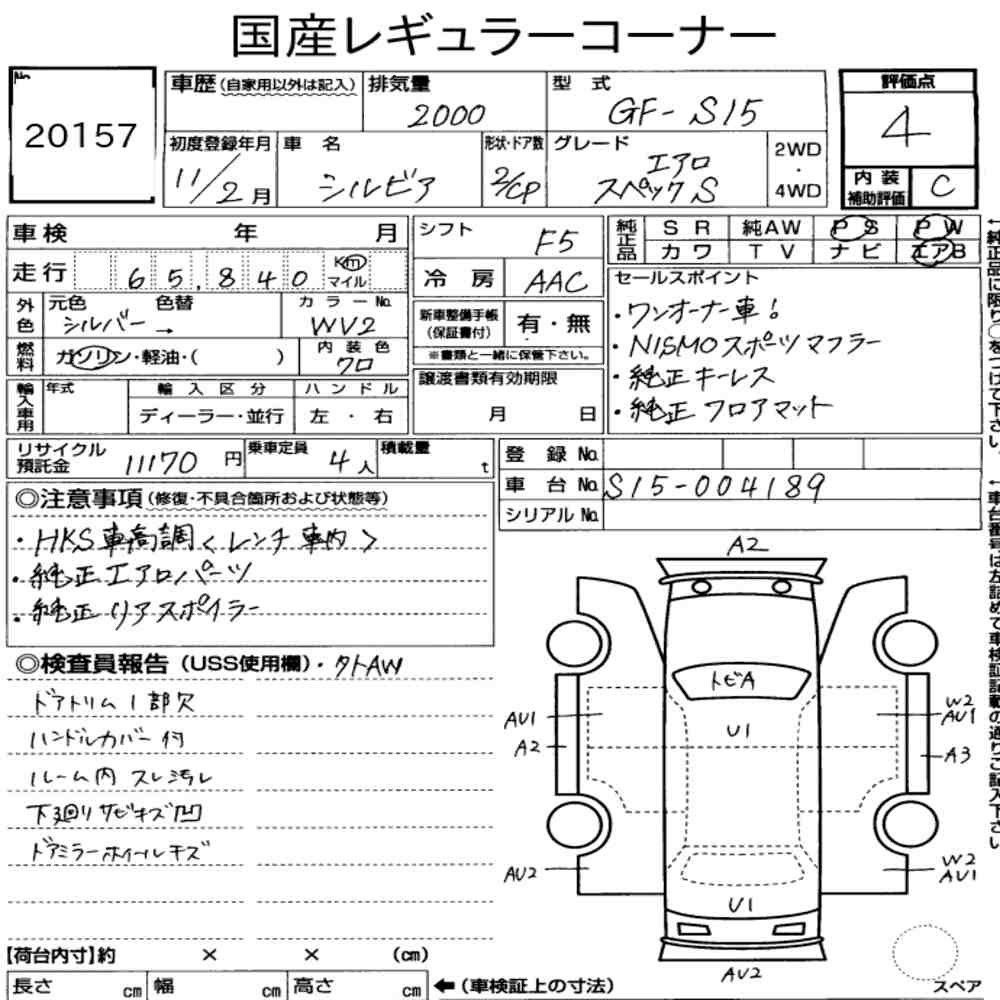 国産レギュラーコーナー
No.
20157
車歴(自家用以外は記入)
排気量
2000
型 式
GF-S15
評価点
4
内装補助評価
C
初度登録年月
11/2月
車 名
シルビア
形状・ドア数
2/CP
グレード
エアロ
スペックS
2WD
・
4WD
車検 年 月
走行 65,840 Km マイル
外色 元色 シルバー → 色替
カラーNo.
WV2
燃料 ガソリン・軽油・( )
内装色
クロ
輸入車用 年式
輸入区分
ディーラー・並行
ハンドル
左・右
シフト
F5
冷 房
AAC
新車整備手帳
(保証書付)
有・無
※書類と一緒に保管下さい。
譲渡書類有効期限
月 日
純正品
SR 純AW PS PW
カワ TV ナビ エアB
セールスポイント
・ワンオーナー車!
・NISMOスポーツマフラー
・純正キーレス
・純正フロアマット
←純正品に限り○をつけて下さい。
リサイクル預託金 11170円
乗車定員 4人
積載量 t
登 録 No.
車 台 No. S15-004189
シリアル No.
←車台番号は左詰めで車検証記載の通りご記入下さい。
◎注意事項(修復・不具合箇所および状態等)
・HKS車高調<レンチ車内>
・純正エアロパーツ
・純正リアスポイラー
◎検査員報告(USS使用欄)・タトAW
ドアトリム1部欠
ハンドルカバー付
ルーム内スレ汚レ
下廻りサビキズ凹
ドアミラーホイールキズ
A2
トビA
U1
AU1
A2
W2
AU1
A3
AU2
W2
AU1
U1
AU2
スペア
【荷台内寸】約 × × (cm)
長さ cm 幅 cm 高さ cm
←(車検証上の寸法)